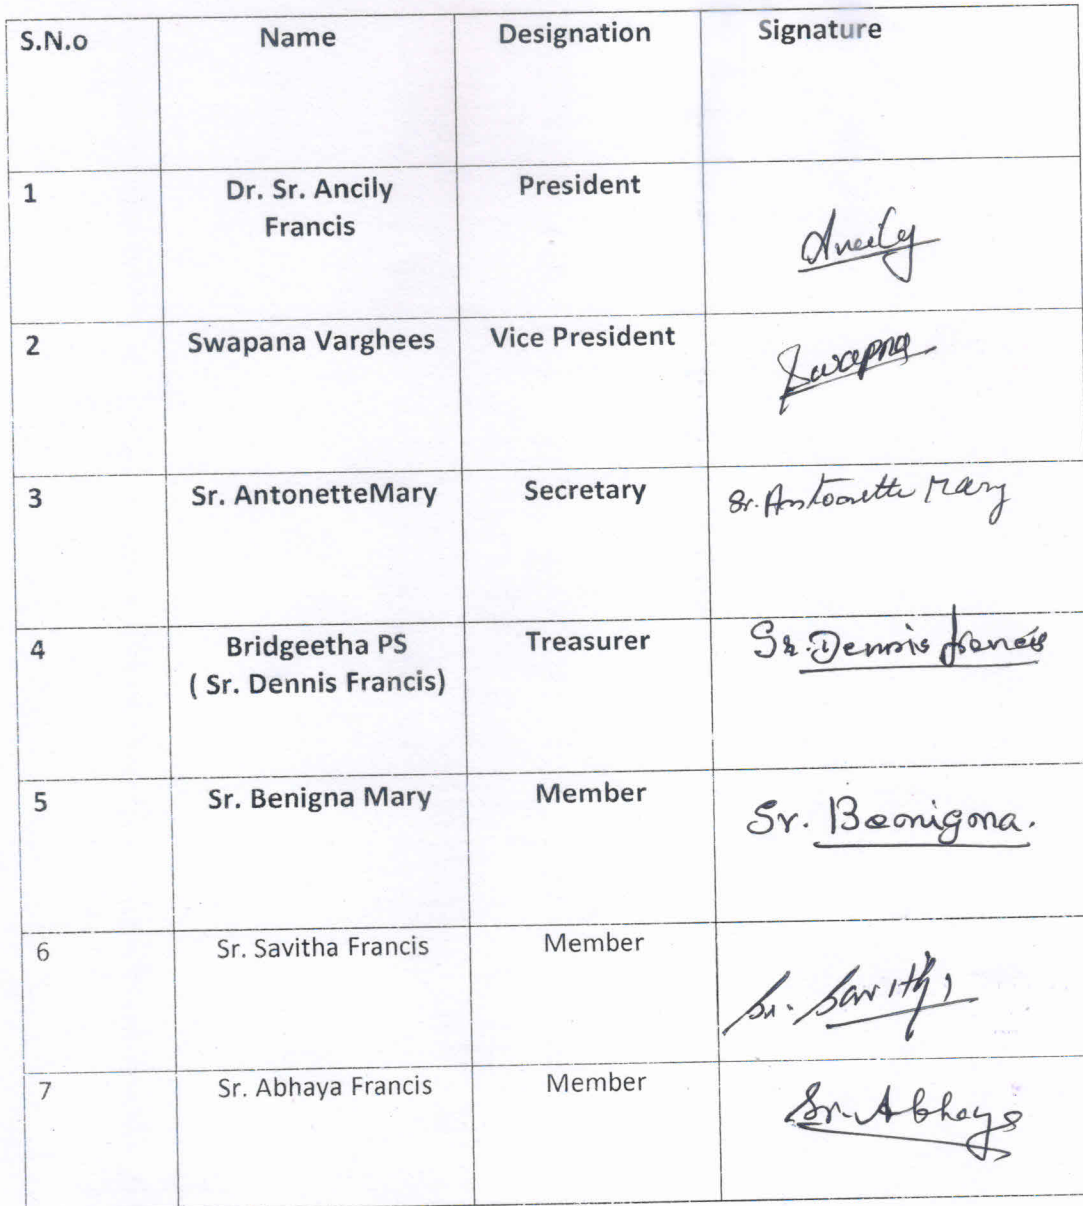 S.N.o Name Designation Signature
1 Dr. Sr. Ancily President Ancily
Francis
2 Swapana Varghees Vice President Swapna
3 Sr. AntonetteMary Secretary Sr. Antoonette Mary
4 Bridgeetha PS Treasurer Sr. Dennis francis
( Sr. Dennis Francis)
5 Sr. Benigna Mary Member Sr. Beonigona.
6 Sr. Savitha Francis Member Sr. Savitha
7 Sr. Abhaya Francis Member Sr. Abhaya